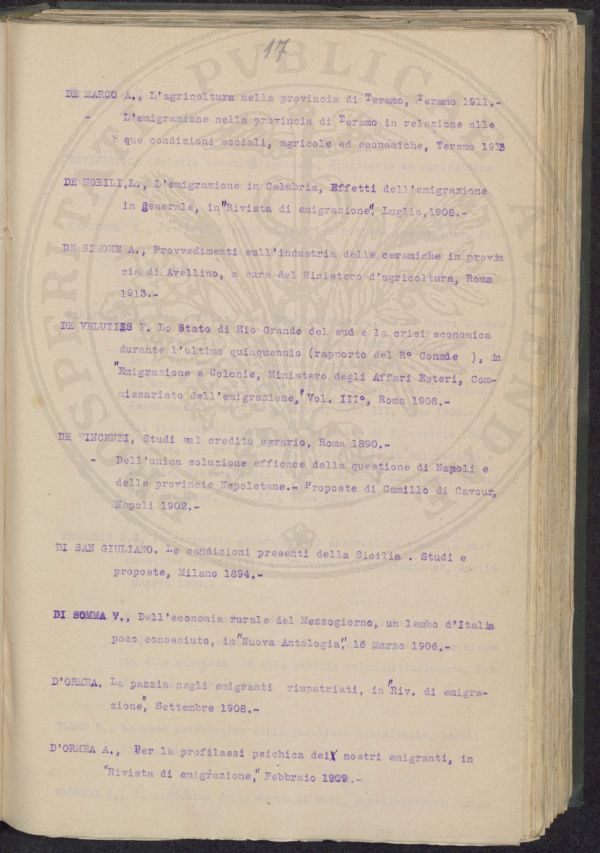 17
DE MARCO A., L'agricoltura nella provincia di Teramo, Teramo 1911.-
- L'emigrazione nella provincia di Teramo in relazione alle
sue condizioni sociali, agricole ed economiche, Teramo 1913
DE NOBILI, L., L'emigrazione in Calabria, Effetti dell'emigrazione
in generale, in "Rivista di emigrazione", Luglio, 1908.-
DE SIMONE A., Provvedimenti sull'industria delle ceramiche in provin
cia di Avellino, a cura del Ministero d'agricoltura, Roma
1913.-
DE VELUTIIS F. Lo Stato di Rio Grande del sud e la crisi economica
durante l'ultimo quinquennio (rapporto del R° Console ), in
"Emigrazione e Colonie, Ministero degli Affari Esteri, Com-
missariato dell'emigrazione," Vol. III°, Roma 1908.-
DE VINCENZI, Studi sul credito agrario, Roma 1890.-
- Dell'unica soluzione efficace della questione di Napoli e
delle provincie Napoletane.- Proposte di Camillo di Cavour,
Napoli 1902.-
DI SAN GIULIANO. Le condizioni presenti della Sicilia . Studi e
proposte, Milano 1894.-
DI SOMMA V., Dell'economia rurale del Mezzogiorno, un lembo d'Italia
poco conosciuto, in "Nuova Antologia", 16 Marzo 1906.-
D'ORMEA. La pazzia negli emigranti rimpatriati, in "Riv. di emigra-
zione", Settembre 1908.-
D'ORMEA A., Per la profilassi psichica dei nostri emigranti, in
"Rivista di emigrazione," Febbraio 1909.-